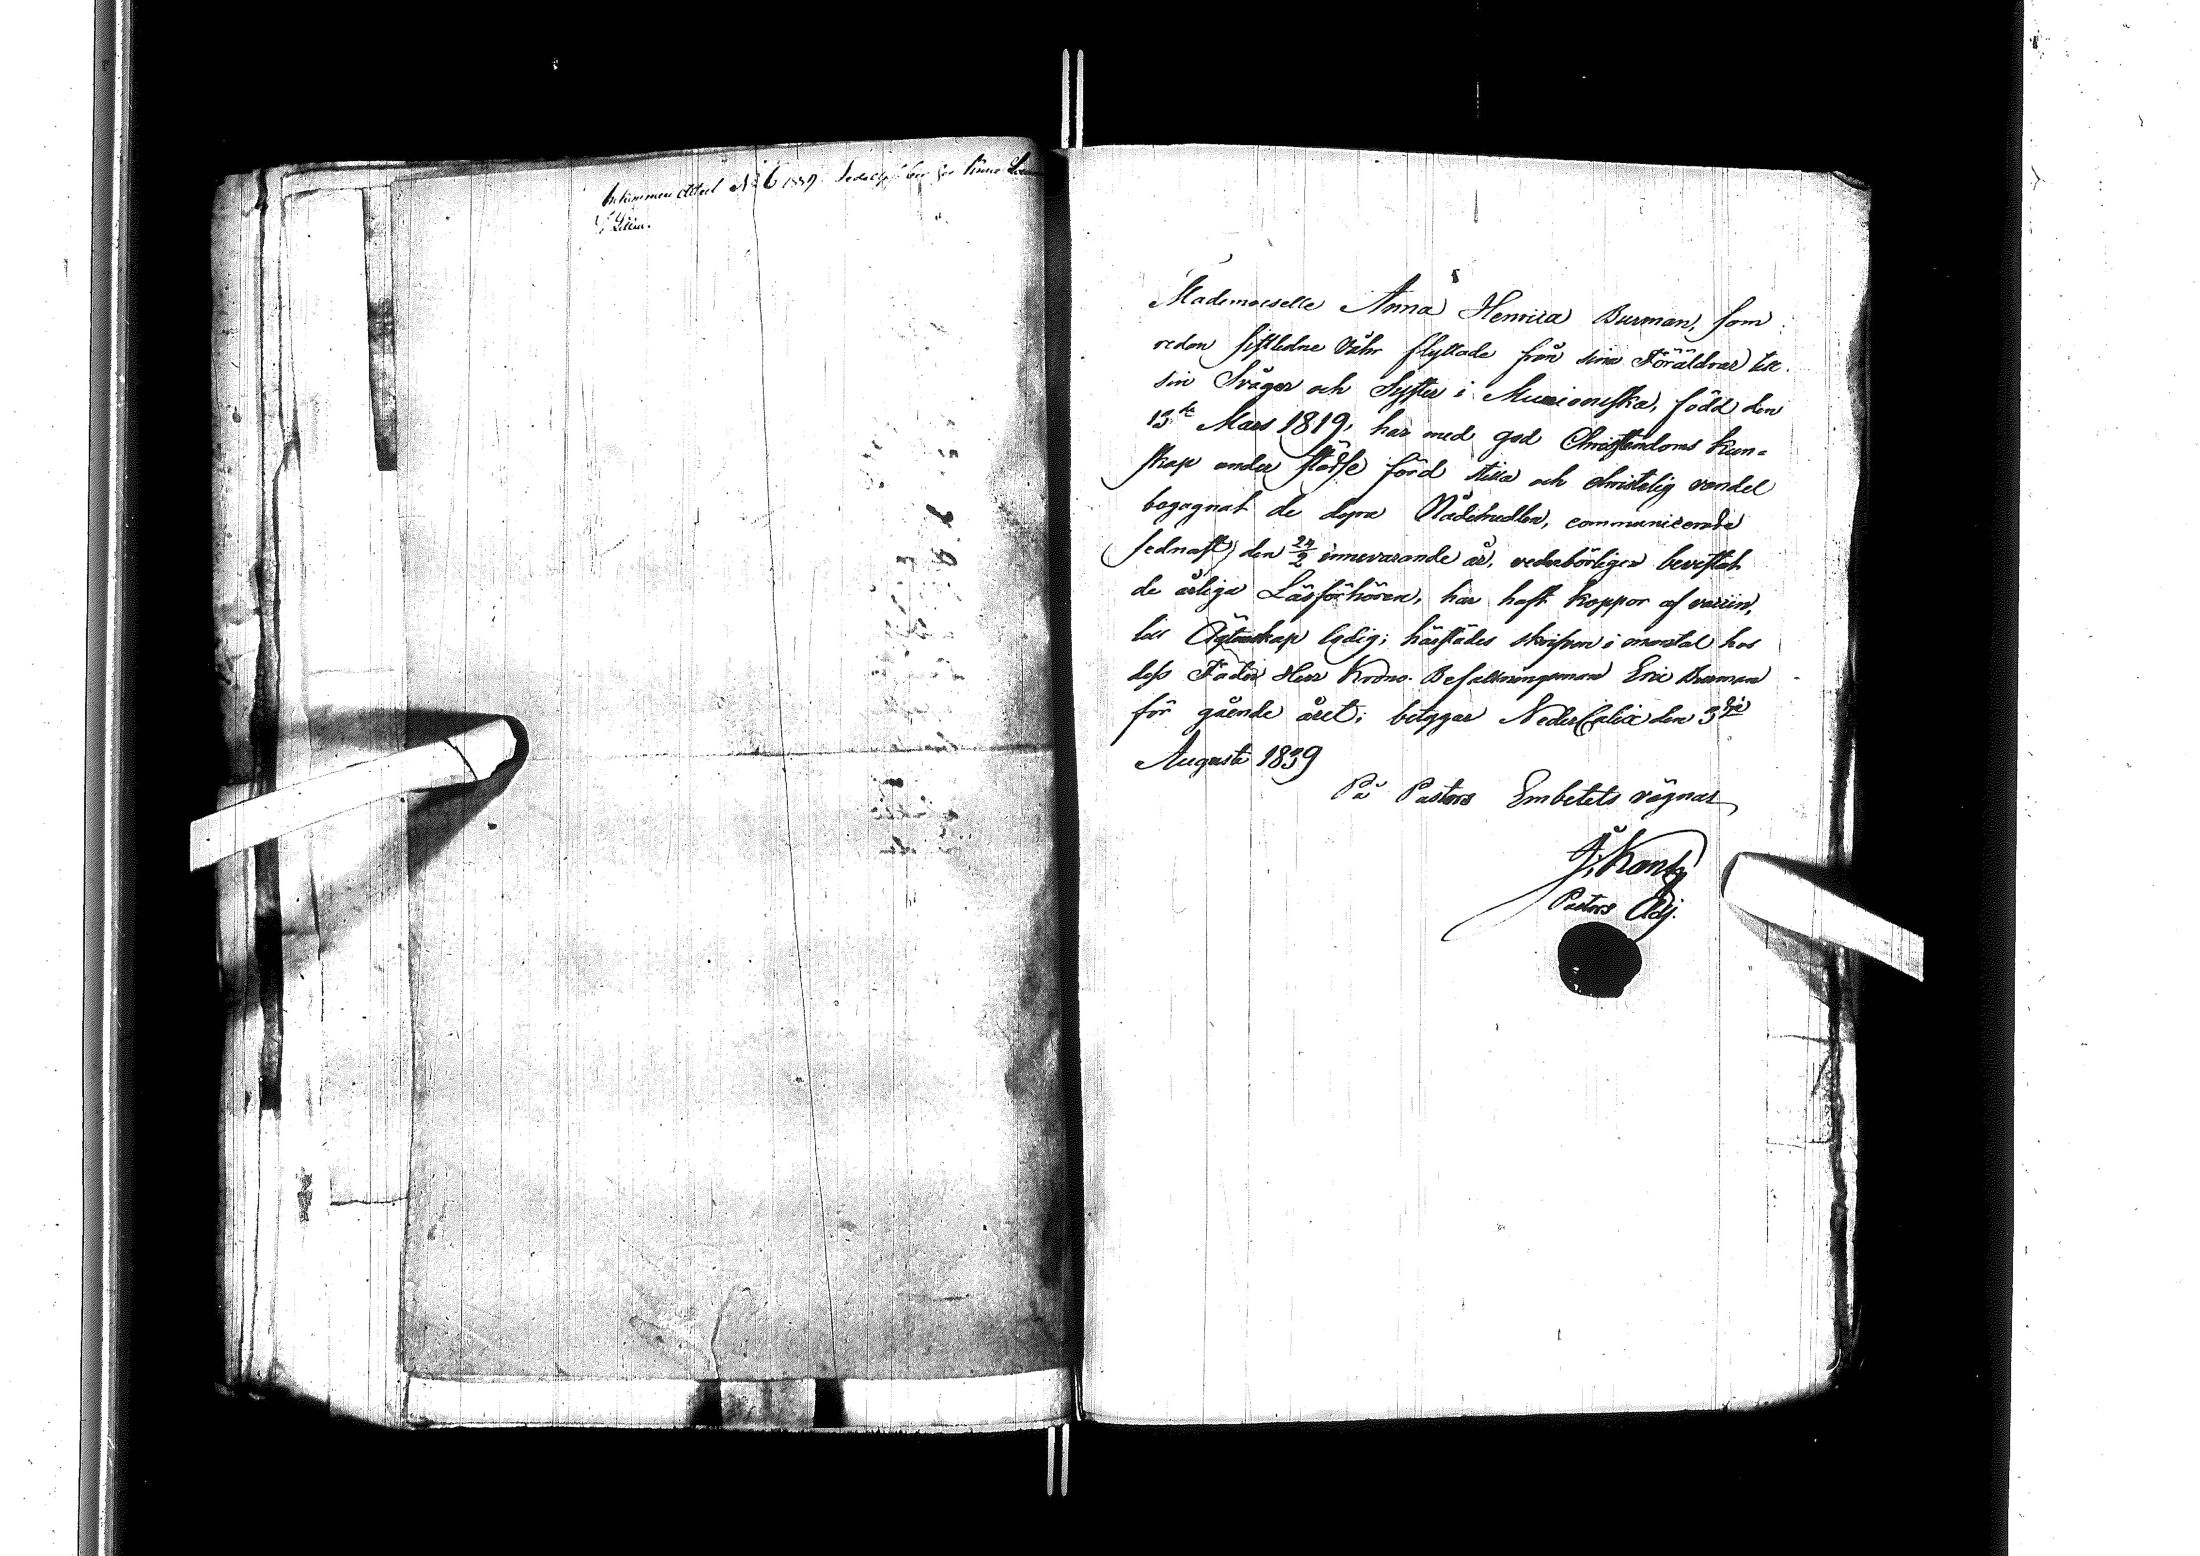 Inkommen Attest No 6 1839
Mademoiselle Anna Henrica Burman, som
redan sistledne Våhr flyttade från sina Föräldrar till
sin Svåger och Syster i Muonioniska, född den
13de Mars 1819, har med god Christendoms kun-
skap under städse förd stilla och christelig vandel
begagnat de dyra Nådemedlen, communicerade
sednast den 24/2 innevarande år, vederbörligen bevistat
de årliga Läsförhören, har haft koppor af vaccin,
till Ägtenskap ledig; härstädes skrifven i mantal hos
dess Fader Herr Krono-Befallningsman Eric Burman
för gående året; betygar NederCalix den 3dje
Augusti 1839
På Pastors Embetets vägnar
Pastors Adj.